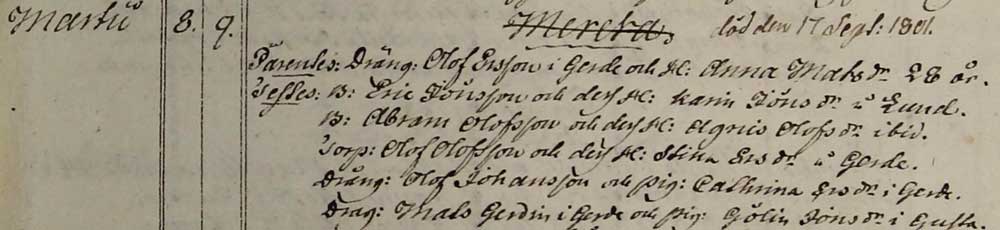 Martii 8. 9. Mereta. död den 17 Sept: 1801.
Parentes: Dräng: Olof Ersson i Gerde och H: Anna Mats dr 28 år.
Testes: B: Eric Jönsson och dess H: Karin Jöns dr i Lund.
B: Abram Olofsson och dess H: Agnis Olofs dr ibid.
Torp: Olof Olofsson och dess H: Stina Ers dr i Gerde.
Dräng: Olof Johansson och pig: Cathrina Ers dr i Gerde.
Drag: Mats Gerdin i Gerde och pig: Gölin Jöns dr i Gusta.